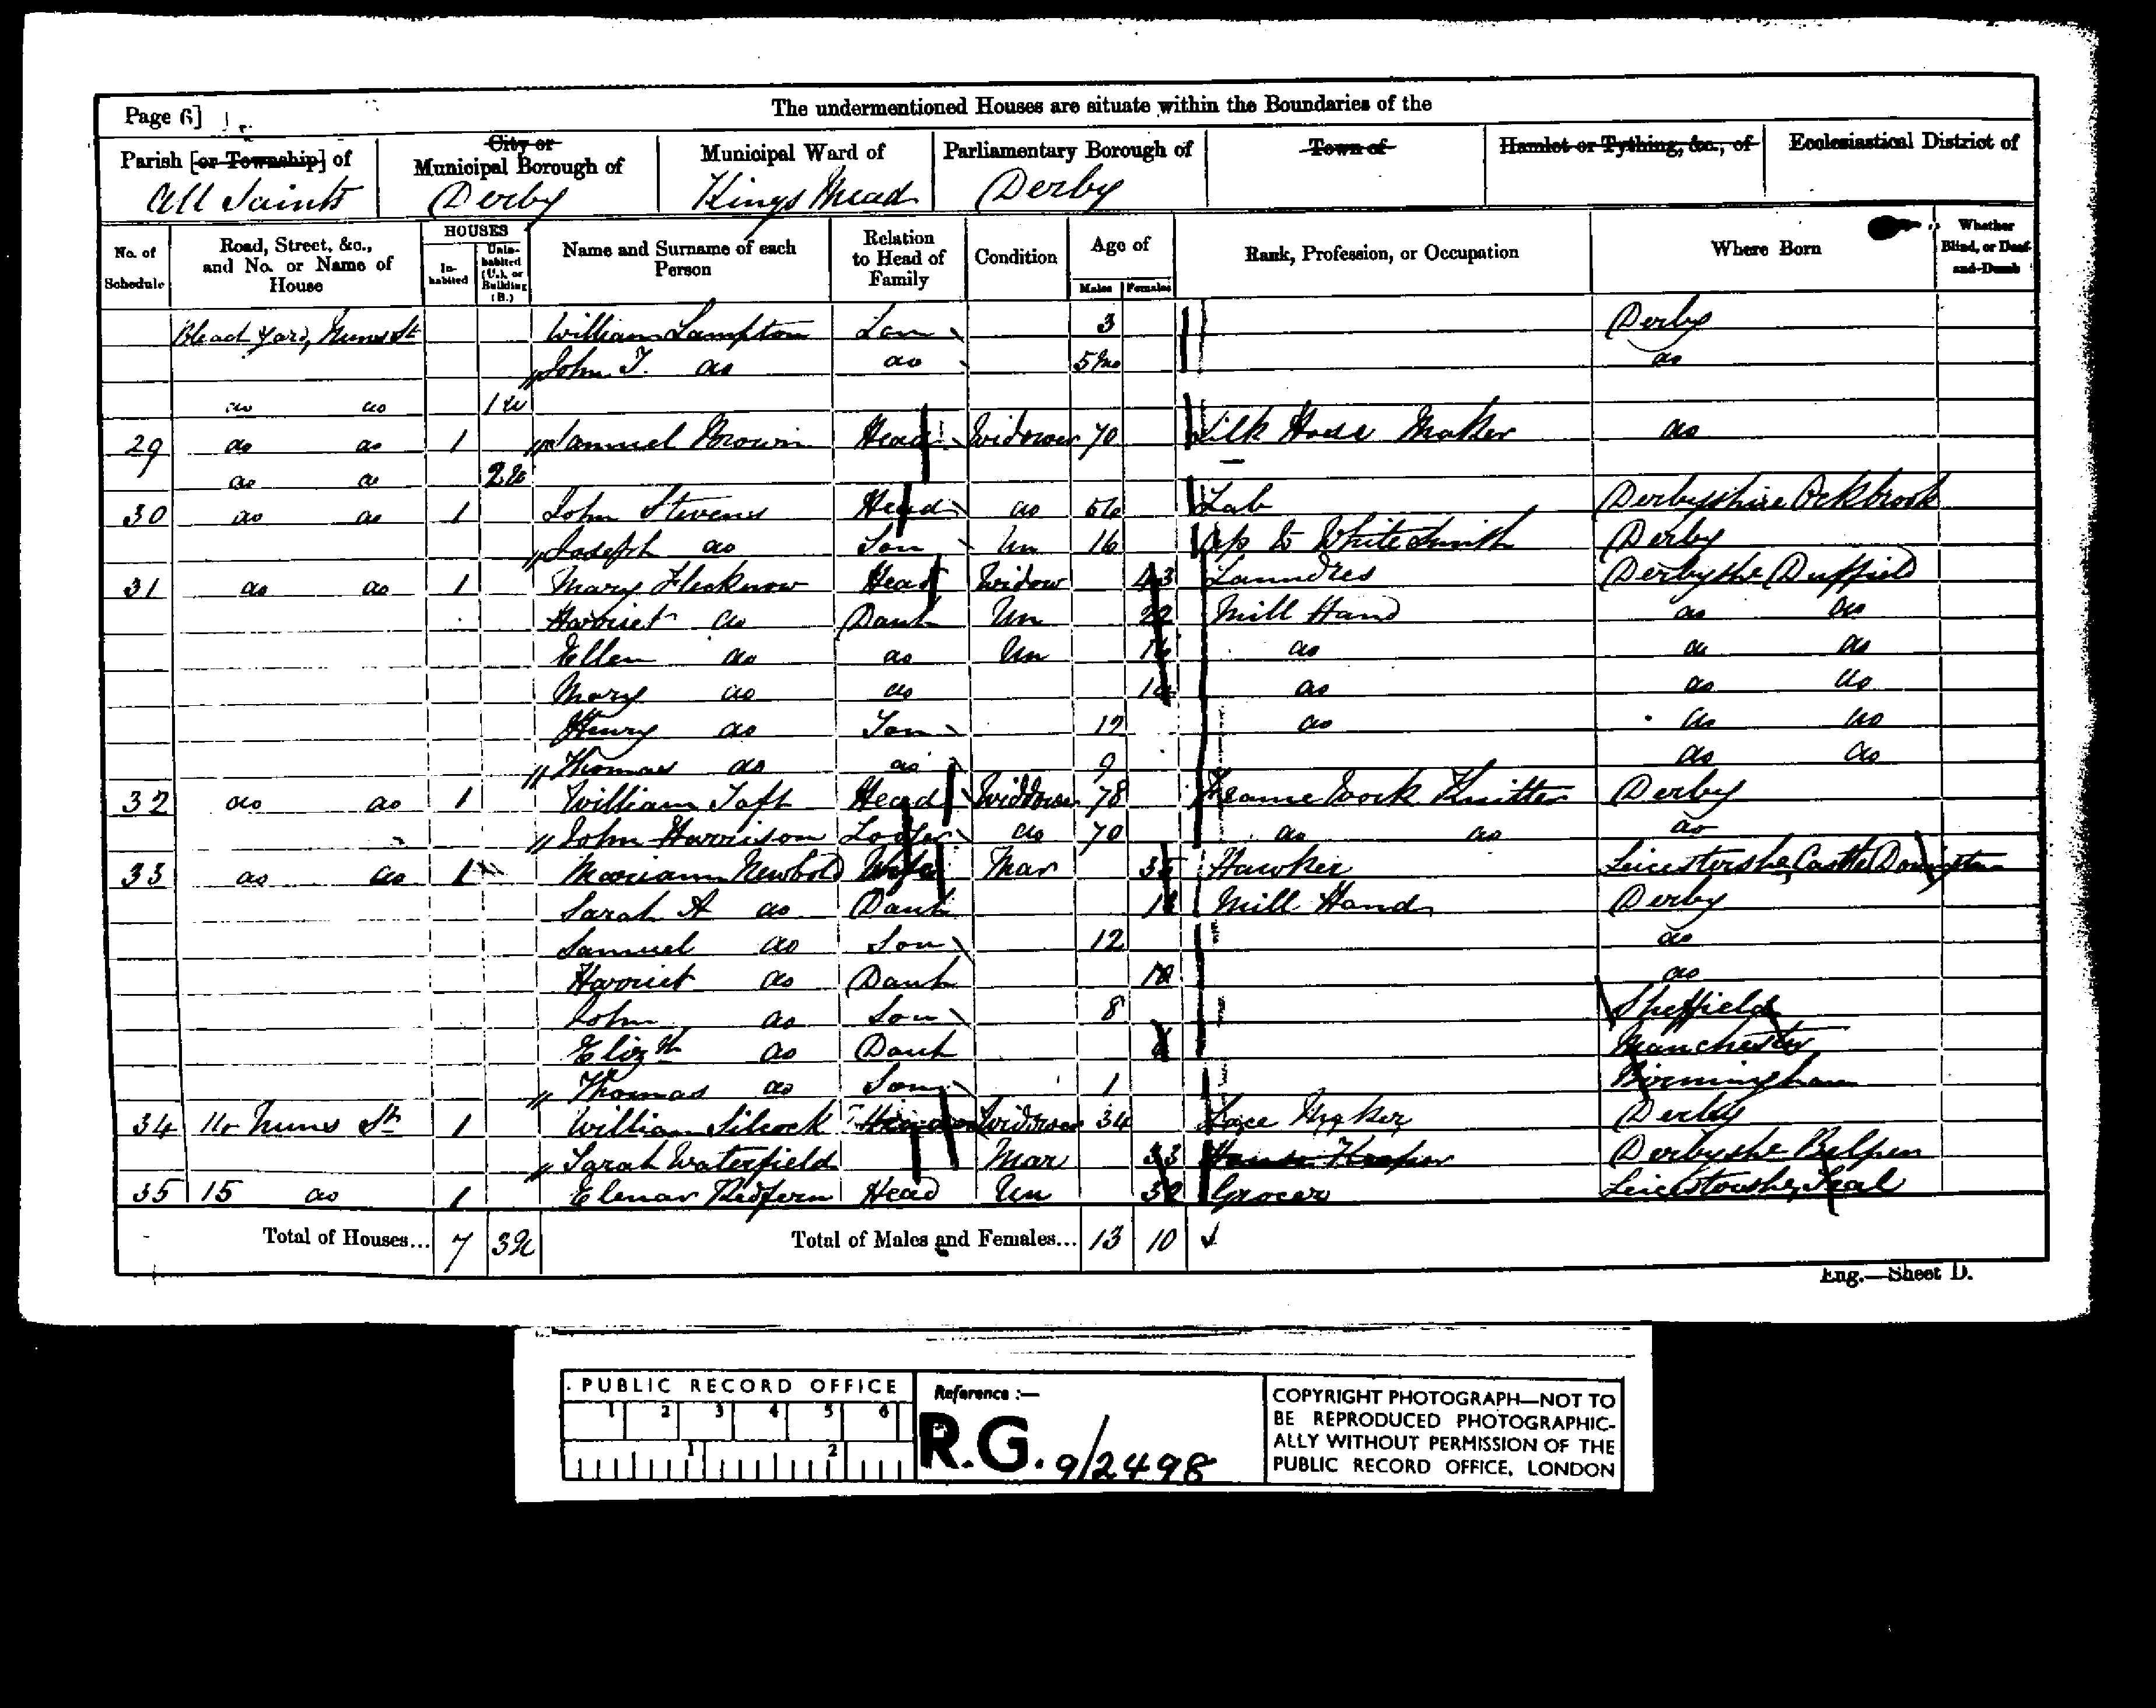 The undermentioned Houses are situate within the Boundaries of the
Page 6]
Parish [or Township] of All Saints
City or Municipal Borough of Derby
Municipal Ward of Kings Mead
Parliamentary Borough of Derby
Town of
Hamlet or Tything, &c., of
Ecclesiastical District of
No. of Schedule
Road, Street, &c., and No. or Name of House
HOUSES
Inhabited
Uninhabited (U.), or Building (B.)
Name and Surname of each Person
Relation to Head of Family
Condition
Age of
Males
Females
Rank, Profession, or Occupation
Where Born
Whether Blind, or Deaf-and-Dumb
Bleach Yard, Nuns St William Lampton Son 3 Derby
John T. do do 5 mo do
do do 1 u
29 do do 1 Samuel Brown Head Widower 70 Silk Hose Maker do
do do 2 u
30 do do 1 John Stevens Head do Lab Derbyshire Ockbrook
Joseph do Son Un 16 Ap to White Smith Derby
31 do do 1 Mary Head Widow 43 Laundres Derbyshe Duffield
Harriet do Daub Un 22 Mill Hand do do
Ellen do do Un do do do
Mary do do do do do
Henry do Son 12 do do do
Thomas do do 9 do do
32 do do 1 William Taft Head Widdower 78 Frame Work Knitter Derby
John Harrison Lodger do 70 do do do
33 do do 1 Mariann Newbold Wife Mar 35 Hawker Leicestershe, Castle Donington
Sarah A do Daub Mill Hand Derby
Samuel do Son 12 do
Harriet do Daub 10 do
John do Son 8 Sheffield
Elizth do Daub Manchester
Thomas do Son 1 Birmingham
34 Nuns St 1 William Silcock Widower 34 Lace Maker Derby
Sarah Waterfield Mar 33 House Keeper Derbyshe Belper
35 15 do 1 Elenar Redfern Head Un Grocer Leicestershe, Seal
Total of Houses... 7 3 u Total of Males and Females... 13 10
Eng.—Sheet D.
PUBLIC RECORD OFFICE
1 2 3 4 5 6
1 2
Reference :—
R.G. 9/2498
COPYRIGHT PHOTOGRAPH—NOT TO
BE REPRODUCED PHOTOGRAPHIC-
ALLY WITHOUT PERMISSION OF THE
PUBLIC RECORD OFFICE, LONDON